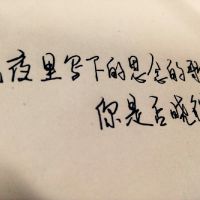 夜里写下的思念的歌
你是否晓得